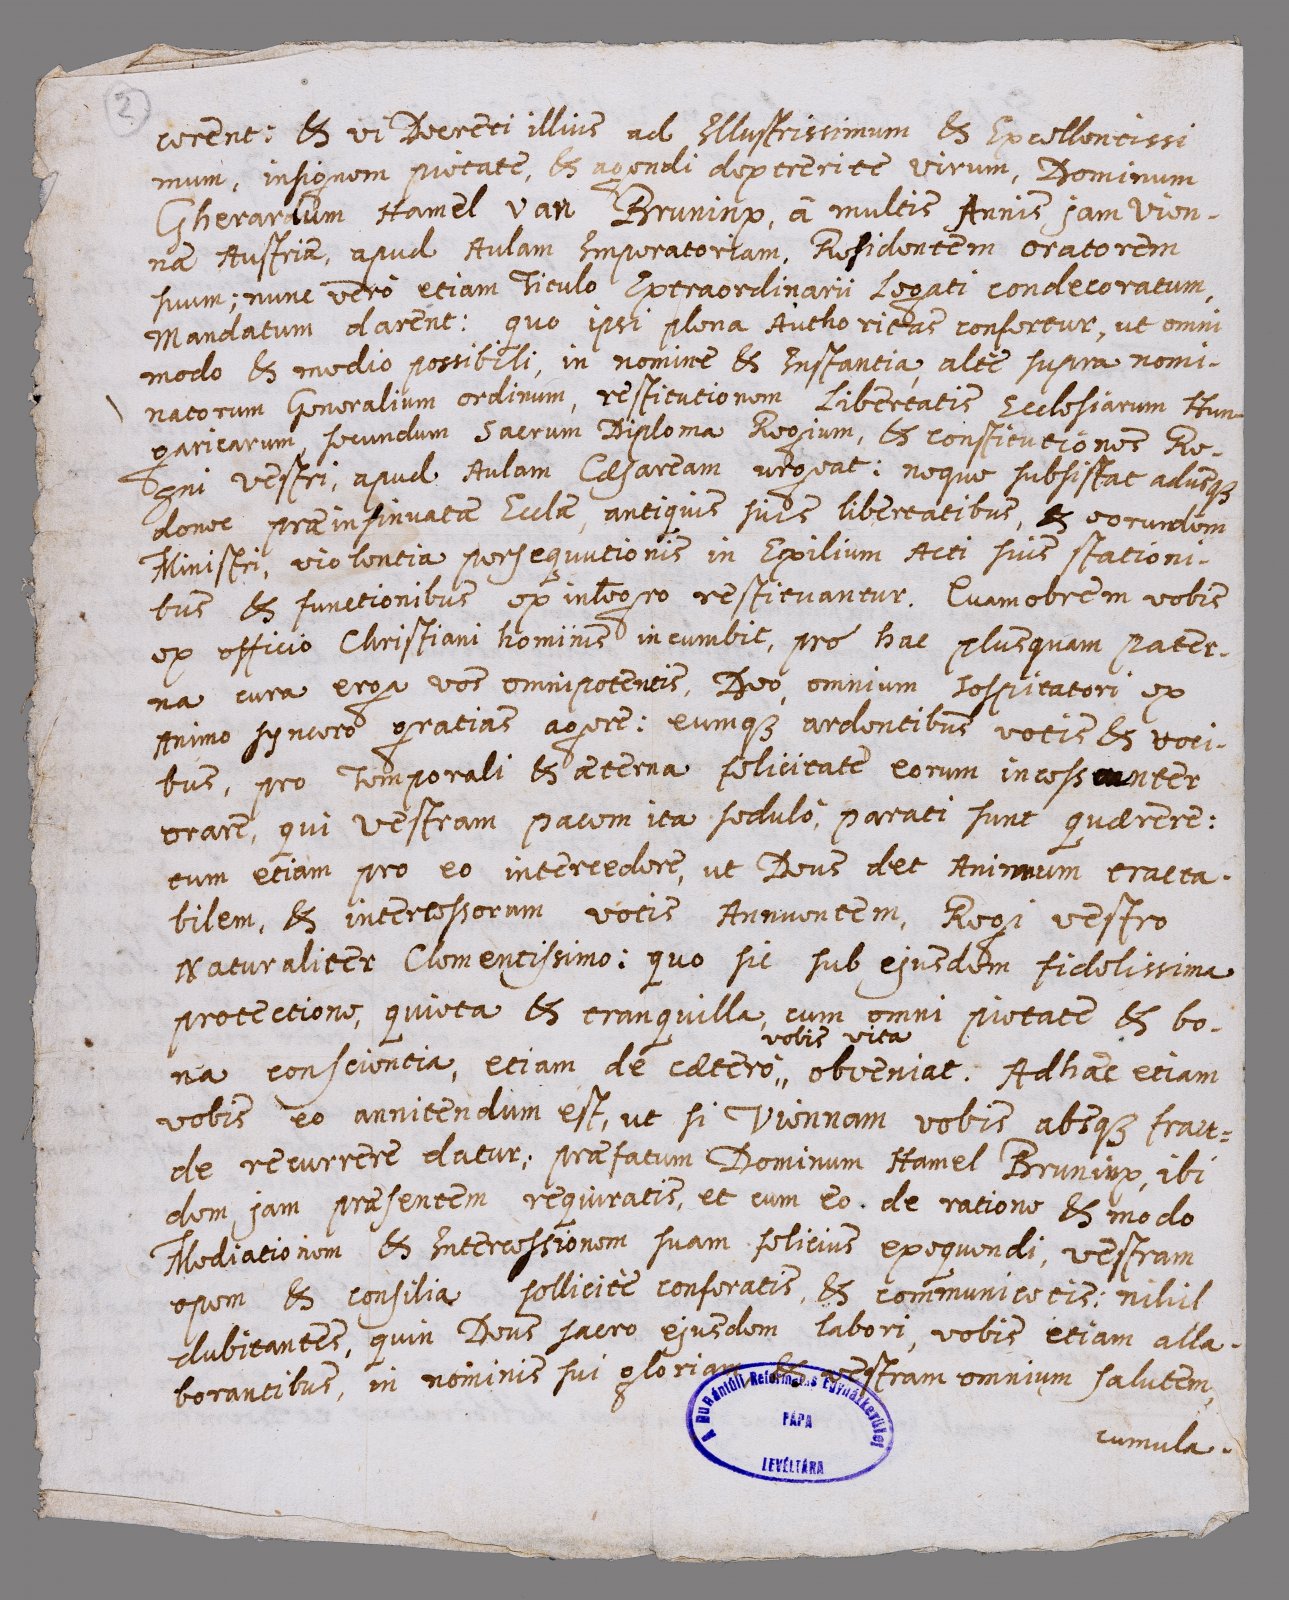 2
cerent: & vi Decreti illius ad Illustrissimum & Excellentissi
mum, insignem pietate, & agendi dexteritate virum, Dominum
Gherardum Hamel van Bruninx, â multis Annis jam Vien-
næ Austriæ, apud Aulam Imperatoriam, Residentem oratorem
suum; nunc verò etiam Titulo Extraordinarii Legati condecoratum,
Mandatum darent: quo ipsi plena Authoritas confertur, ut omni
modo & medio possibili, in nomine & Instantia altè supra nomi-
natorum Generalium ordinum, restitutionem Libertatis Ecclesiarum Hun-
garicarum secundum Sacrum Diploma Regium, & constitutiones Re-
gni vestri, apud Aulam Cæsaream urgeat: neque subsistat adusq3
donec præinsinuatæ Ecclæ, antiquis suis libertatibus, & eorundem
Ministri, violentia persequutionis in Exilium Acti suis stationi-
bus & functionibus ex integro restituantur. Quamobrem vobis
ex officio Christiani hominis incumbit, pro hac plusquam pater-
na cura erga vos omnipotentis, Deo omnium sospitatori ex
Animo syncero gratias agere: eumq3 ardentibus votis & voci-
bus, pro Temporali & æterna felicitate eorum incessanter
orare, qui vestram pacem ita sedulò, parati sunt quærere:
cum etiam pro eo intercedere, ut Deus det Animum tracta-
bilem, & intercessorum votis Annuentem, Regi vestro
Naturaliter Clementissimo: quo sic sub ejusdem fidelissima
protectione, quieta & tranquilla, cum omni pietate & bo-
vobis vita
na conscientia, etiam de cætero,, obveniat. Adhæc etiam
vobis eo annitendum est, ut si Viennam vobis absq3 frau-
de recurrere datur; præfatum Dominum Hamel Bruninx, ibi
dem jam præsentem requiratis, et cum eo de ratione & modo
Mediationem & Intercessionem suam felicius exequendi, vestram
opem & consilia sollicitè conferatis, & communicetis: nihil
dubitantes, quin Deus sacro ejusdem labori, vobis etiam alla-
borantibus, in nominis sui gloriam & vestram omnium salutem,
cumula-
A Dunántúli Református Egyházkerület
PÁPA
LEVÉLTÁRA